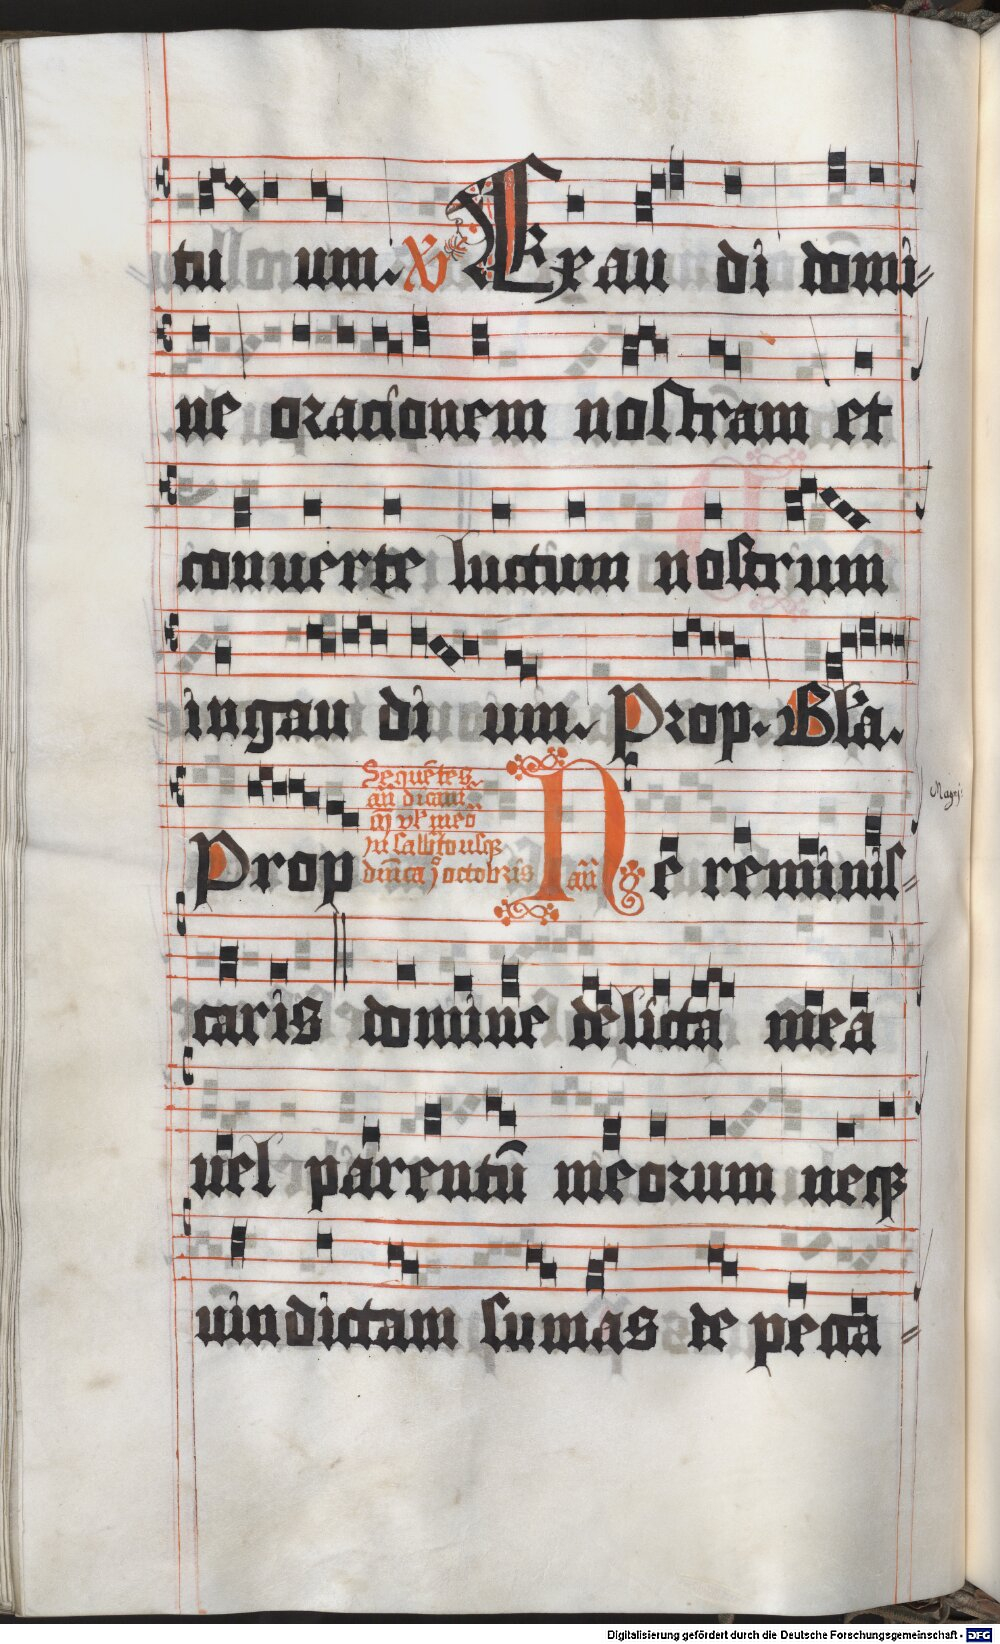 tu um. V Exau di domi
ne oracionem nostram et
conuerte luctum nostrum
ingau di um. Prop. Gl'a.
Sequētes
añ dicant̄
Prop
diñica j octobris añ Ne reminis
caris domine delicta mea
uel parentū meorum neqꝫ
uindictam sumas de pecca
Digitalisierung gefördert durch die Deutsche Forschungsgemeinschaft - DFG